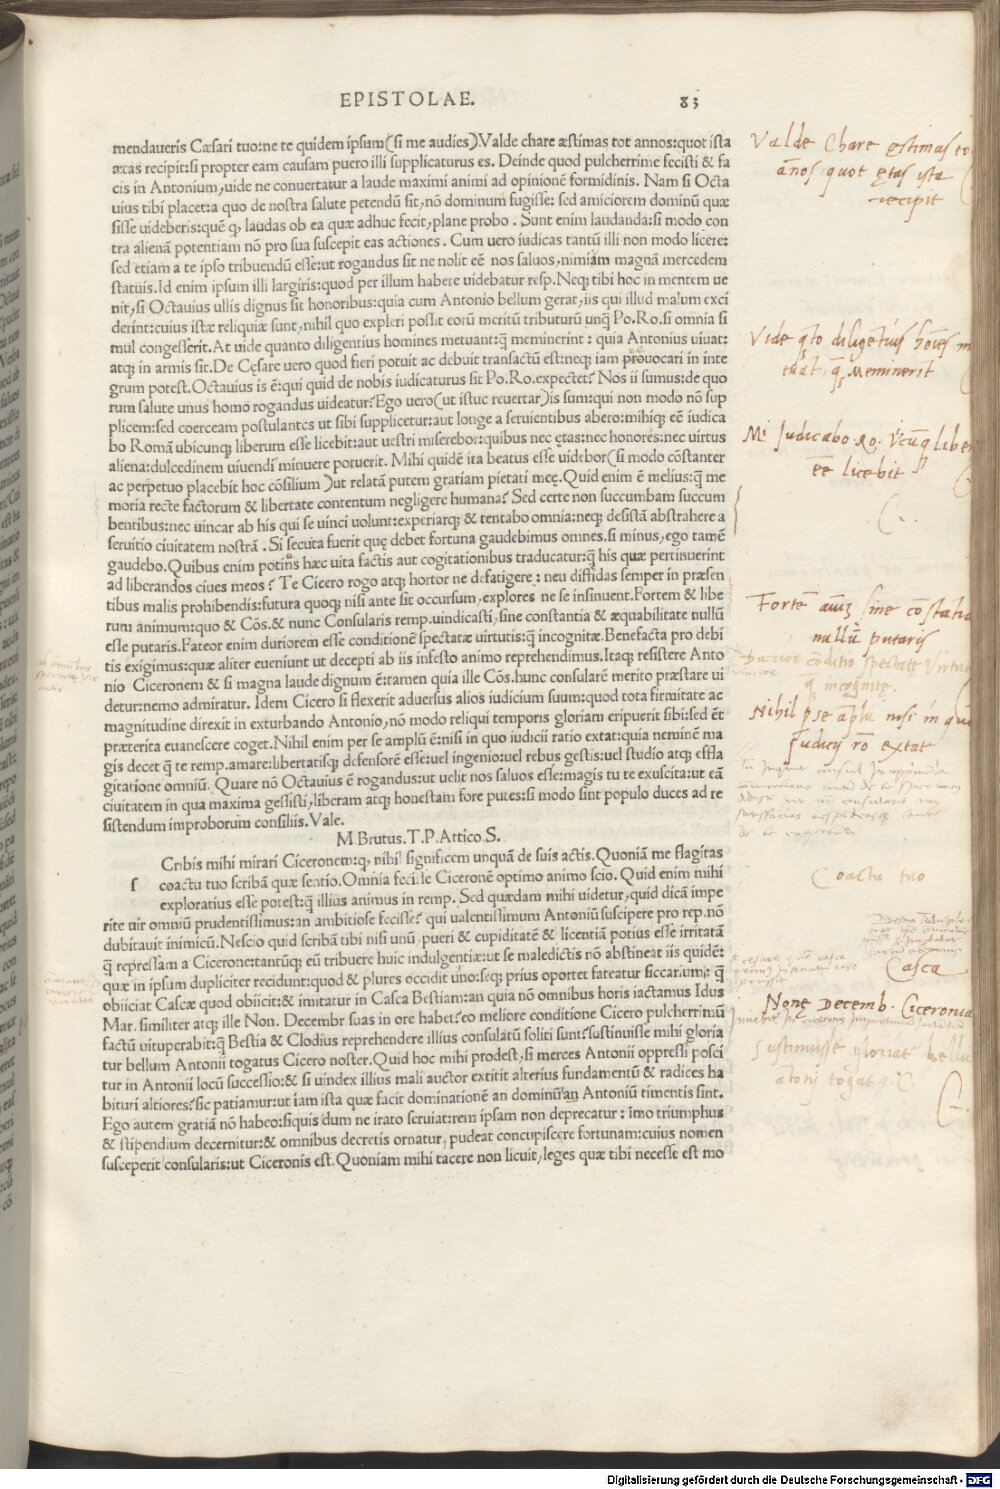 EPISTOLAE. 83
mendaueris Cæsari tuo:ne te quidem ipsum(si me audies).Valde chare æstimas tot annos:quot ista
ætas recipit:si propter eam causam puero illi supplicaturus es. Deinde quod pulcherrime fecisti & fa
cis in Antonium,uide ne conuertatur a laude maximi animi ad opinionē formidinis. Nam si Octa
uius tibi placet:a quo de nostra salute petendū sit,nō dominum fugisse: sed amiciorem dominū quæ
sisse uideberis:quē ꝙ laudas ob ea quæ adhuc fecit,plane probo. Sunt enim laudanda:si modo con
tra alienā potentiam nō pro sua suscepit eas actiones. Cum uero iudicas tantū illi non modo licere:
sed etiam a te ipso tribuendū esse:ut rogandus sit ne nolit eē nos saluos,nimiam magnā mercedem
statuis.Id enim ipsum illi largiris:quod per illum habere uidebatur resp.Neqꝫ tibi hoc in mentem ue
nit,si Octauius ullis dignus sit honoribus:quia cum Antonio bellum gerat,iis qui illud malum exci
derint:cuius istæ reliquiæ sunt,nihil quo expleri possit eorū meritū tributurū unqꝫ Po.Ro.si omnia si
mul congesserit.At uide quanto diligentius homines metuant:q̄ meminerint : quia Antonius uiuat:
atqꝫ in armis sit.De Cęsare uero quod fieri potuit ac debuit transactū est:neqꝫ iam prouocari in inte
grum potest.Octauius is ē:qui quid de nobis iudicaturus sit Po.Ro.expectet? Nos ii sumus:de quo
rum salute unus homo rogandus uideatur?Ego uero(ut istuc reuertar)is sum:qui non modo nō sup
plicem:sed coerceam postulantes ut sibi supplicetur:aut longe a seruientibus abero:mihiqꝫ eē iudica
bo Romā ubicunqꝫ liberum esse licebit:aut uestri miserebor:quibus nec ętas:nec honores:nec uirtus
aliena:dulcedinem uiuendi minuere potuerit. Mihi quidē ita beatus esse uidebor(si modo cōstanter
ac perpetuo placebit hoc cōsilium )ut relatā putem gratiam pietati meę.Quid enim ē melius:q̄ me
moria recte factorum & libertate contentum negligere humana? Sed certe non succumbam succum
bentibus:nec uincar ab his qui se uinci uolunt:experiarqꝫ & tentabo omnia:neqꝫ desistā abstrahere a
seruitio ciuitatem nostrā . Si secuta fuerit quę debet fortuna gaudebimus omnes.si minus,ego tamē
gaudebo.Quibus enim potius hæc uita factis aut cogitationibus traducatur:q̄ his quæ pertinuerint
ad liberandos ciues meos? Te Cicero rogo atqꝫ hortor ne defatigere : neu diffidas semper in præsen
tibus malis prohibendis:futura quoqꝫ nisi ante sit occursum,explores ne se insinuent.Fortem & libe
rum animum:quo & Cōs.& nunc Consularis remp.uindicasti,sine constantia & æquabilitate nullū
esse putaris.Fateor enim duriorem esse conditionē spectatæ uirtutis:q̄ incognitæ.Benefacta pro debi
tis exigimus:quæ aliter eueniunt ut decepti ab iis infesto animo reprehendimus.Itaqꝫ resistere Anto
nio Ciceronem & si magna laude dignum ē:tamen quia ille Cōs.hunc consularē merito præstare ui
detur:nemo admiratur. Idem Cicero si flexerit aduersus alios iudicium suum:quod tota firmitate ac
magnitudine direxit in exturbando Antonio,nō modo reliqui temporis gloriam eripuerit sibi:sed ēt
præterita euanescere coget.Nihil enim per se amplū ē:nisi in quo iudicii ratio extat:quia neminē ma
gis decet q̄ te remp.amare:libertatisqꝫ defensorē esse:uel ingenio:uel rebus gestis:uel studio atqꝫ effla
gitatione omniū. Quare nō Octauius ē rogandus:ut uelit nos saluos esse:magis tu te exuscita:ut eā
ciuitatem in qua maxima gessisti,liberam atqꝫ honestam fore putes:si modo sint populo duces ad re
sistendum improborum consiliis.Vale.
M.Brutus.T.P.Attico S.
Cribis mihi mirari Ciceronem:qꝫ nihil significem unquā de suis actis.Quoniā me flagitas
s coactu tuo scribā quæ sentio.Omnia fecisse Ciceronē optimo animo scio. Quid enim mihi
exploratius esse potest:q̄ illius animus in remp. Sed quædam mihi uidetur,quid dicā impe
rite uir omniū prudentissimus:an ambitiose fecisse? qui ualentissimum Antoniū suscipere pro rep.nō
dubitauit inimicū. Nescio quid scribā tibi nisi unū, pueri & cupiditatē & licentiā potius esse irritatā
q̄ repressam a Cicerone:tantūqꝫ eū tribuere huic indulgentiæ:ut se maledictis nō abstineat iis quidē:
quæ in ipsum dupliciter recidunt:quod & plures occidit uno:seqꝫ prius oportet fateatur siccarium: q̄
obiiciat Cascæ quod obiicit:& imitatur in Casca Bestiam:an quia nō omnibus horis iactamus Idus
Mar. similiter atqꝫ ille Non. Decembr suas in ore habet?eo meliore conditione Cicero pulcherrimū
factū uituperabit:q̄ Bestia & Clodius reprehendere illius consulatū soliti sunt?sustinuisse mihi gloria
tur bellum Antonii togatus Cicero noster.Quid hoc mihi prodest,si merces Antonii oppressi posci
tur in Antonii locū successio:& si uindex illius mali auctor extitit alterius fundamentū & radices ha
bituri altiores?sic patiamur:ut iam ista quæ facit dominationē an dominū an Antoniū timentis sint.
Ego autem gratiā nō habeo:siquis dum ne irato seruiat:rem ipsam non deprecatur : imo triumphus
& stipendium decernitur:& omnibus decretis ornatur, pudeat concupiscere fortunam:cuius nomen
susceperit consularis:ut Ciceronis est.Quoniam mihi tacere non licuit,leges quæ tibi necesse est mo
Valde Chare ęstimas to
ānos quot ętas ista
recipit
Vide q̄to diligētius hoīes m
tuāt q̄ Meminerit
Mi Judicabo Ro. Vbicūqꝫ liber
eē licebit
Fortē aīuꝫ sine cōstātia
nullū putaris
Durior cōditio spectatę Virtut
q̄ incognitę
Nihil p se āplū nisi in quo
Judicij rō extat
Coactu tuo
Casca
Nonę Decemb. Ciceronia
Sustinuisse gloriat bellū
ātonij togat9 C
Digitalisierung gefördert durch die Deutsche Forschungsgemeinschaft - DFG